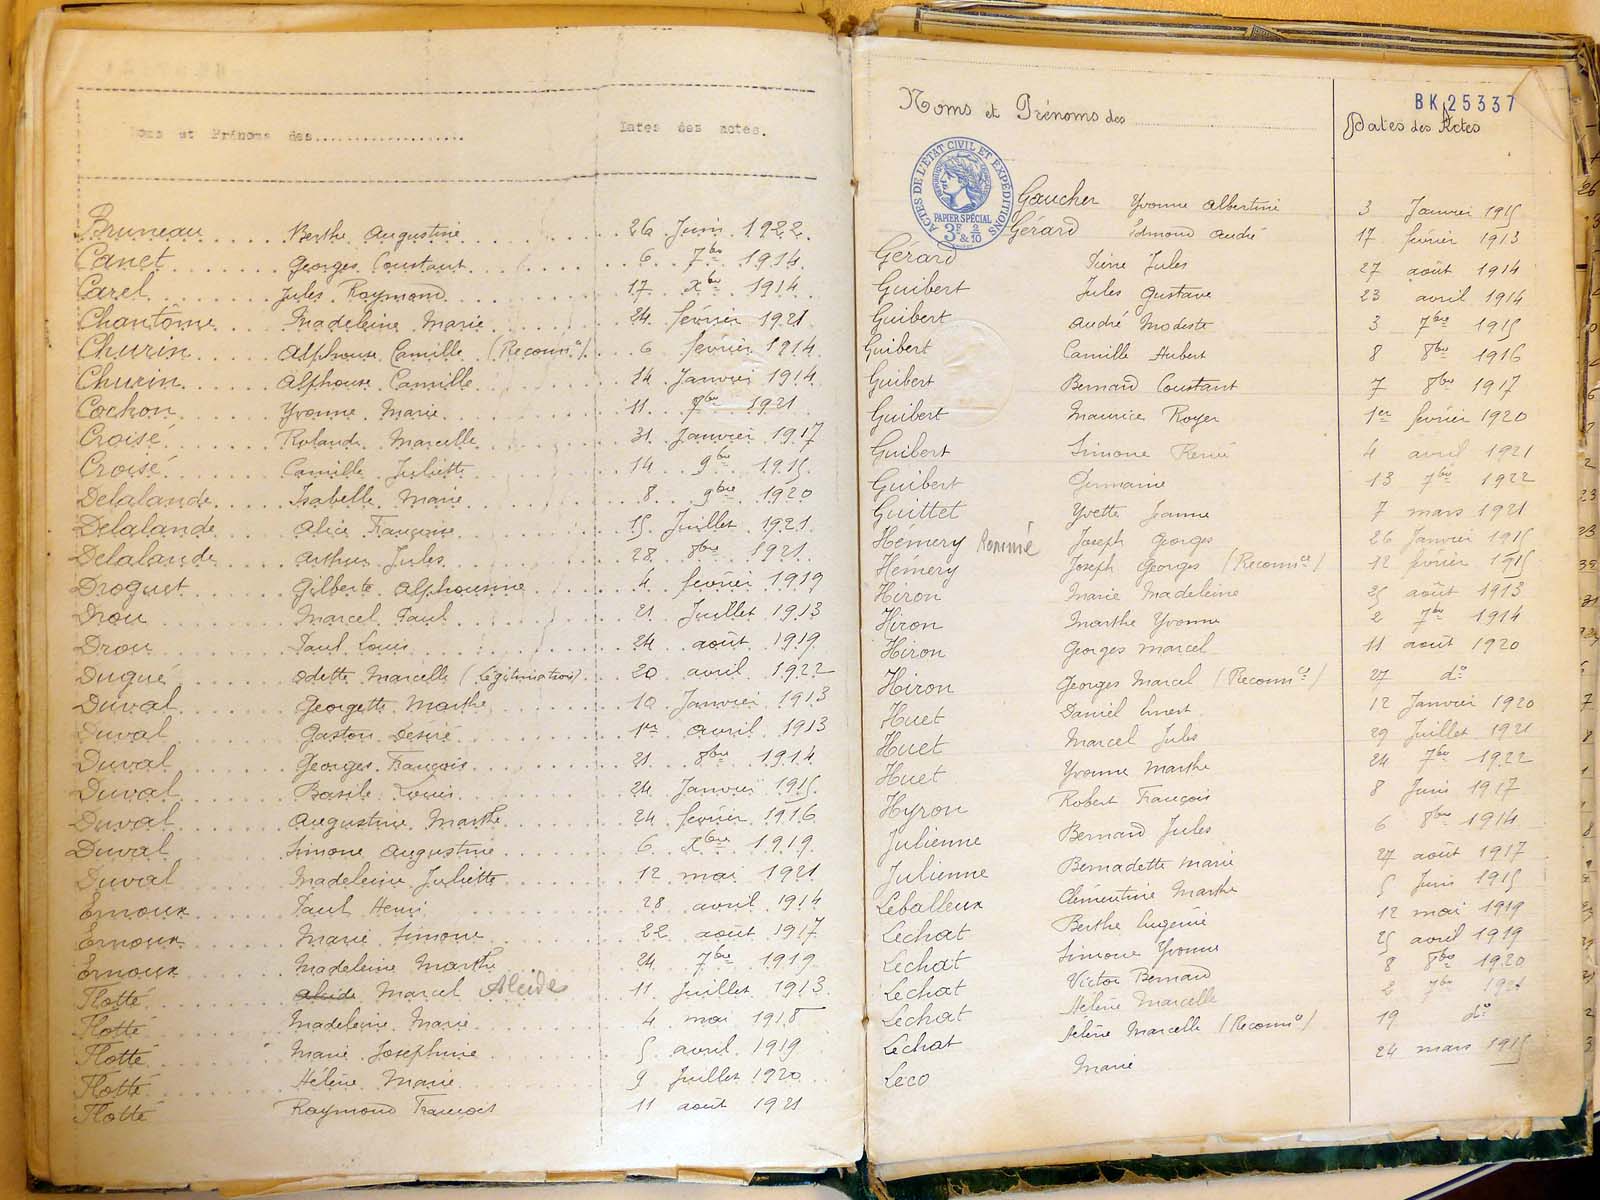 Noms et Prénoms des................... Dates des actes.
Bruneau Berthe Augustine 26 Juin 1922
Canet Georges Constant 6 7bre 1914
Carel Jules Raymond 17 Xbre 1914
Chantôme Madeleine Marie 24 février 1921
Churin Alphonse Camille (Reconnce) 6 février 1914
Churin Alphonse Camille 24 Janvier 1914
Cochon Yvonne Marie 11 7bre 1921
Croisé Rolande Marcelle 31 Janvier 1917
Croisé Camille Juliette 14 9bre 1915
Delalande Isabelle Marie 8 9bre 1920
Delalande Alice Françoise 15 Juillet 1921
Delalande Arthur Jules 28 8bre 1921
Droguet Gilberte Alphonsine 4 février 1919
Drou Marcel Paul 21 Juillet 1913
Drou Paul Louis 24 août 1919
Dugué Odette Marcelle (Légitimation) 20 avril 1922
Duval Georgette Marthe 10 Janvier 1913
Duval Gaston Désiré 1er avril 1913
Duval Georges François 21 8bre 1914
Duval Basile Louis 24 Janvier 1915
Duval Augustine Marthe 24 février 1916
Duval Simone Augustine 6 Xbre 1919
Duval Madeleine Juliette 12 mai 1921
Ernoux Paul Henri 28 avril 1914
Ernoux Marie Simone 22 août 1917
Ernoux Madeleine Marthe 24 7bre 1919
Flotté Alcide Marcel Alcide 11 Juillet 1913
Flotté Madeleine Marie 4 mai 1918
Flotté Marie Joséphine 5 avril 1919
Flotté Hélène Marie 9 Juillet 1920
Flotté Raymond François 11 août 1921
BK 25337
Noms et Prénoms des Dates des Actes
ACTES DE L'ÉTAT CIVIL ET EXPÉDITIONS
PAPIER SPÉCIAL
3F & 2/10
Gaucher Yvonne Albertine 3 Janvier 1915
Gérard Edmond André 17 février 1913
Gérard Pierre Jules 27 août 1914
Guibert Jules Gustave 23 avril 1914
Guibert André Modeste 3 7bre 1915
Guibert Camille Hubert 8 8bre 1916
Guibert Bernard Constant 7 8bre 1917
Guibert Maurice Roger 1er février 1920
Guibert Simone Renée 4 avril 1921
Guibert Germaine 13 7bre 1922
Guittet Yvette Jeanne 7 mars 1921
Hémery Joseph Georges 26 Janvier 1915
Hémery Joseph Georges (Reconnce) 12 février 1915
Hiron Marie Madeleine 25 août 1913
Hiron Marthe Yvonne 2 7bre 1914
Hiron Georges Marcel 11 août 1920
Hiron Georges Marcel (Reconnce) 27 do
Huet Daniel Ernest 12 Janvier 1920
Huet Marcel Jules 29 Juillet 1921
Huet Yvonne Marthe 24 7bre 1922
Hyron Robert François 8 Juin 1917
Julienne Bernard Jules 6 8bre 1914
Julienne Bernadette Marie 27 août 1917
Leballeux Clémentine Marthe 5 Juin 1915
Lechat Berthe Eugénie 12 mai 1919
Lechat Simone Yvonne 25 avril 1919
Lechat Victor Bernard 8 8bre 1920
Lechat Hélène Marcelle 2 7bre 1921
Lechat Hélène Marcelle (Reconnce) 19 do
Leco Marie 24 mars 1915